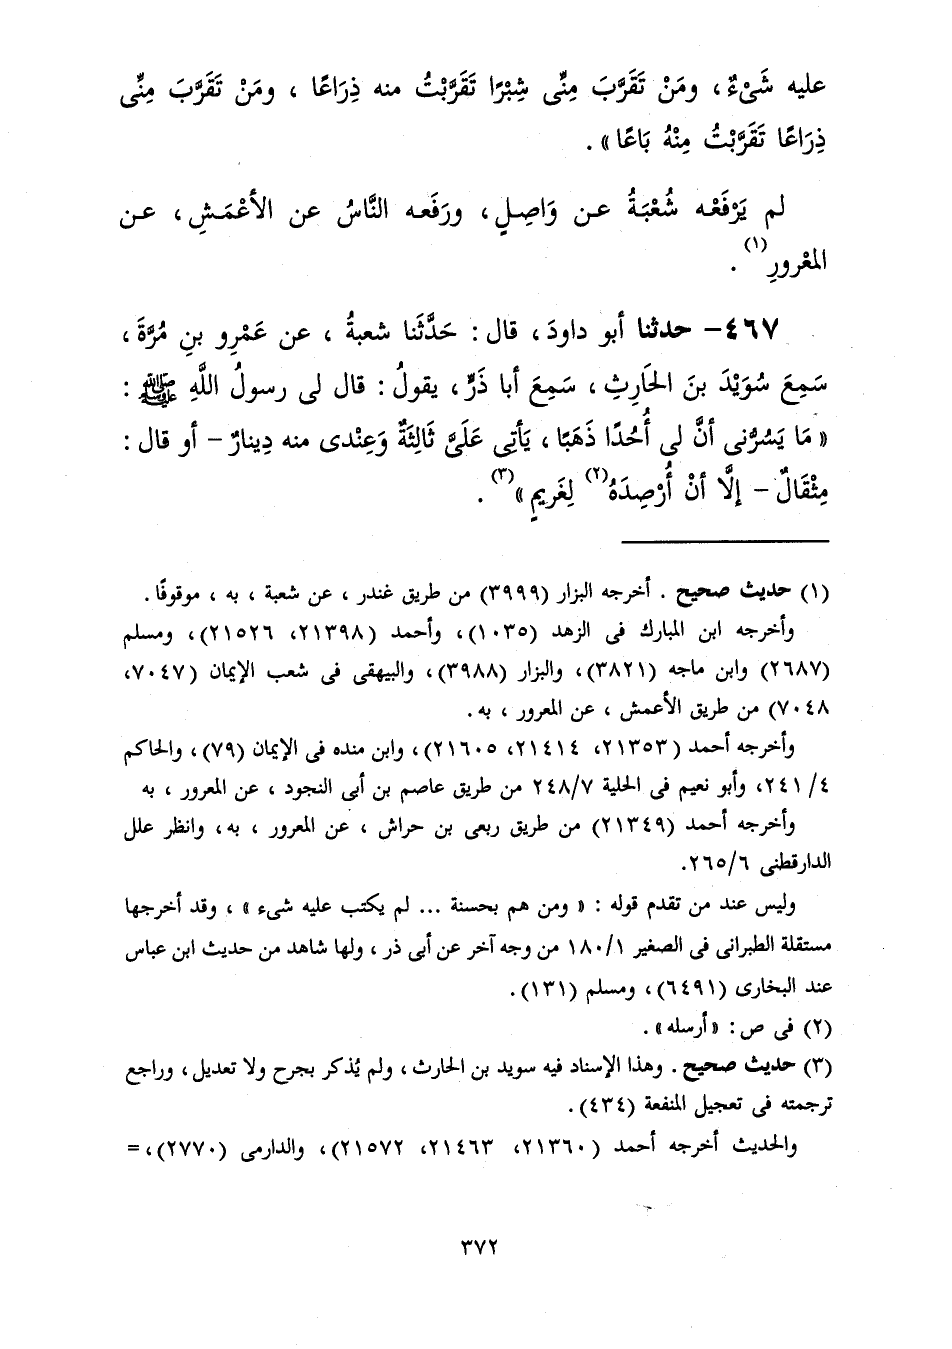 عليه شَيْءٌ، ومَنْ تَقَرَّبَ مِنِّى شِبْرًا تَقَرَّبْتُ منه ذِرَاعًا ، ومَنْ تَقَرَّبَ مِنِّى
ذِرَاعًا تَقَرَّبْتُ مِنْهُ بَاعًا» .
لم يَرْفَعْه شُعْبَةُ عن وَاصِلٍ، ورَفَعه النَّاسُ عن الأَعْمَشِ، عن
المَعْرورِ(١) .
٤٦٧- حدثنا أبو داودَ، قال: حَدَّثَنا شعبةُ ، عن عَمْرِو بنِ مُرَّةَ،
سَمِعَ سُوَيْدَ بنَ الحَارِثِ، سَمِعَ أبا ذَرٍّ، يقولُ: قال لى رسولُ اللَّهِ ﷺ :
« مَا يَسُرُّنى أنَّ لى أُحُدًا ذَهَبًا، يَأتِى عَلَىَّ ثَالِثَةٌ وَعِنْدى منه دِينارٌ - أو قال :
مِثْقَالٌ - إلَّا أنْ أُرْصِدَهُ(٢) لِغَرِيمٍ»(٣) .
(١) حديث صحيح . أخرجه البزار (٣٩٩٩) من طريق غندر ، عن شعبة ، به ، موقوفًا .
وأخرجه ابن المبارك فى الزهد (١٠٣٥)، وأحمد (٢١٣٩٨، ٢١٥٢٦)، ومسلم
(٢٦٨٧) وابن ماجه (٣٨٢١)، والبزار (٣٩٨٨)، والبيهقى فى شعب الإيمان (٧٠٤٧،
٧٠٤٨) من طريق الأعمش ، عن المعرور ، به .
وأخرجه أحمد (٢١٣٥٣، ٢١٤١٤، ٢١٦٠٥)، وابن منده فى الإيمان (٧٩)، والحاكم
٤/ ٢٤١، وأبو نعيم فى الحلية ٢٤٨/٧ من طريق عاصم بن أبى النجود ، عن المعرور ، به
وأخرجه أحمد (٢١٣٤٩) من طريق ربعى بن حراش ، عن المعرور ، به، وانظر علل
الدارقطنى ٢٦٥/٦.
وليس عند من تقدم قوله : « ومن هم بحسنة ... لم يكتب عليه شىء » ، وقد أخرجها
مستقلة الطبرانى فى الصغير ١٨٠/١ من وجه آخر عن أبى ذر ، ولها شاهد من حديث ابن عباس
عند البخارى (٦٤٩١)، ومسلم (١٣١).
(٢) فى ص : «أرسله» .
(٣) حديث صحيح . وهذا الإسناد فيه سويد بن الحارث ، ولم يُذكر بجرح ولا تعديل ، وراجع
ترجمته فى تعجيل المنفعة (٤٣٤).
والحديث أخرجه أحمد (٢١٣٦٠، ٢١٤٦٣، ٢١٥٧٢)، والدارمى (٢٧٧٠)، =
٣٧٢